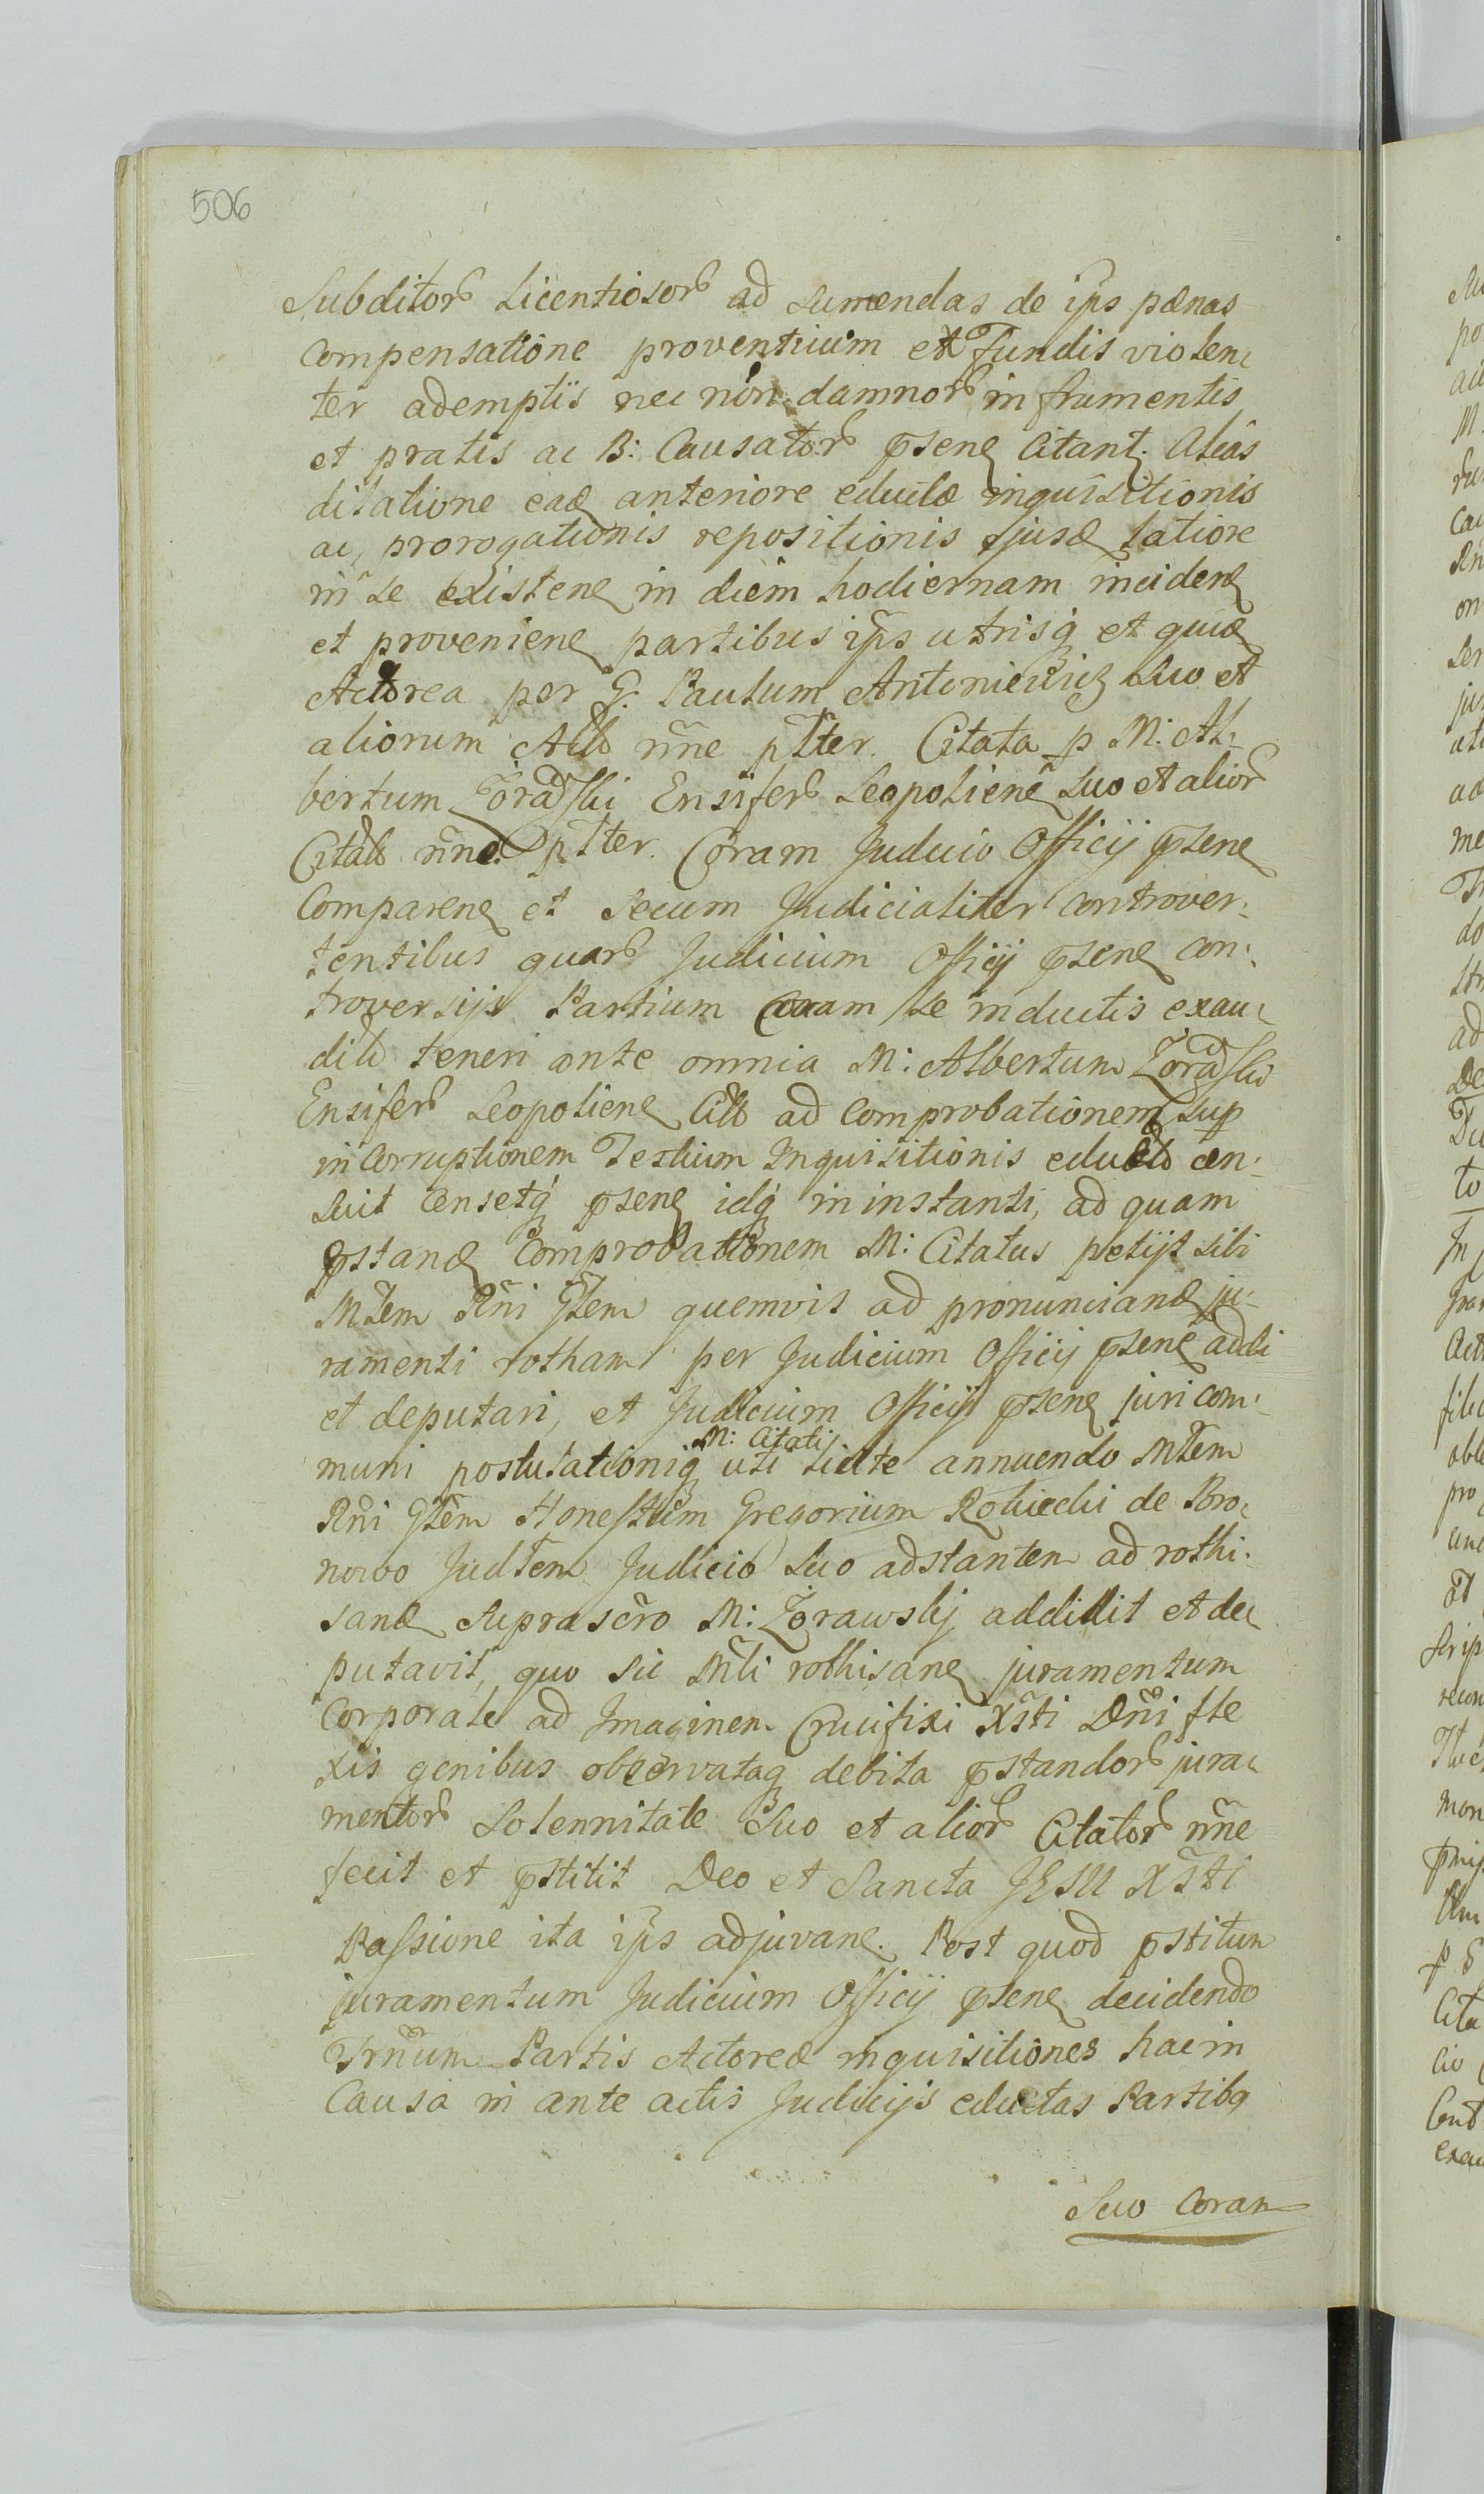 506
Subditorꝫ Licentiosorꝫ ad sumendas de ip̃s pænas
compensatione proventuum et Fundis violen-
ter ademptis nec non damnorꝫ in frumentis
et pratis ac B: Causatorꝫ pñsen Citant. Alias
dilatione ead anteriore eductæ inquisitionis
ac prorogationis repositionis ejusd latiore
in se existen in diem hodiernam inciden
et provenien partibus ip̃s utrisq̃ et quid
Actorea per G. Paulum Antoniewicz suo et
aliorum Act nñe pltter. Citata p M: Al-
bertum Żoraw̃ski Ensiferꝫ Leopolien suo et aliorꝫ
Citat nñe pltter. Coram Judicio Officij pñsen
Comparen et secum Judicialiter controver-
tentibus quarꝫ Judicium Officij pñsen con-
troversijs Partium Coram se inductis exau-
dit teneri ante omnia M: Albertum Żoraw̃ski
Ensiferꝫ Leopolien Citt ad comprobationem sup
incorruptionem Testium Inquisitionis educt cen-
suit censetq̃ pñsen idq̃ in instanti, ad quam
p̃stand Comprobationem M: Citatus petijt sibi
Mtem Rñi Gtem quemvis ad pronunciand ju-
ramenti rotham per Judicium Officij pñsen addi
et deputari, et Judicium Officij pñsen juri com-
muni postulationiq̃ M: Citati uti licite annuendo Mtem
Rñi Gtem Honestum Gregorium Rohiecki de Bro-
nowo Judtem Judicio suo adstantem ad rothi-
sand suprascr̃o M: Żorawsky addidit et de-
putavit, quo sic Mti rothisan juramentum
Corporale ad Imaginem Crucifixi Xsti Dñi fle
xis genibus observataq̃ debita p̃standorꝫ jura-
mentorꝫ Solennitate Suo et aliorꝫ Citatorꝫ nñe
fecit et p̃stitit Deo et Sancta JESU Xsti
Passione ita ip̃s adjuvan. Post quod p̃stitum
juramentum Judicium Officij pñsen decidendo
Trñum Partis Actoreæ inquisitiones hac in
Causa in ante actis Judicijs eductas Partibq
Suo Coram